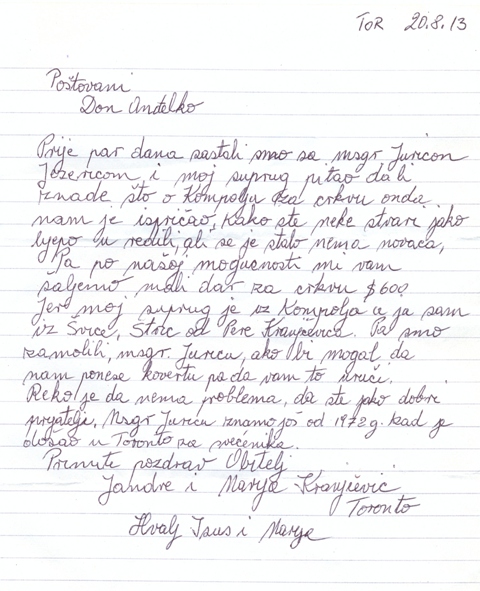 TOR 20.8.13
Poštovani
Don Anđelko
Prije par dana sastali smo sa msgr Juricon
Jezericom, i moj suprug pitao dali
iznade što o Kompolju za crkvu onda
nam je ispričao, kako ste neke stvari jako
ljepo u redili, ali se je stalo nema novaca,
Pa po našoj mogućnosti mi vam
saljemo mali dar za crkvu $600
Jer moj suprug je iz Kompolja a ja sam
iz Švice, Stric od Pere Kranjčevića. Pa smo
zamolili, msgr. Juricu, ako bi mogal da
nam ponese kovertu pa da vam to uruči.
Reko je da nema problema, da ste jako dobri
prjatelji, Msgr Juricu znamo još od 1972 g. kad je
dosao u Toronto za svećenika.
Primite pozdrav Obitelj
Jandre i Marija Kranjčević
Toronto
Hvalj Isus i Marija